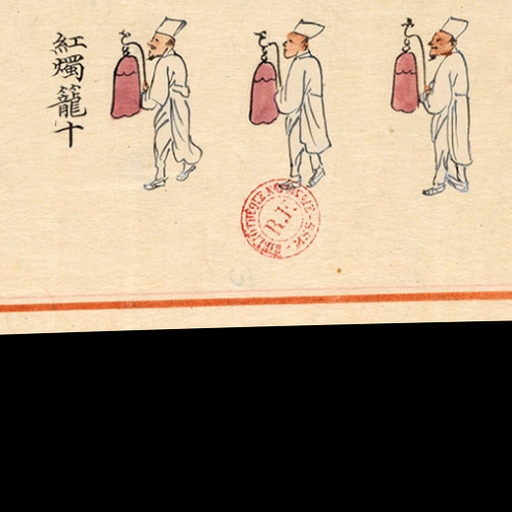 紅燭籠十
BIBLIOTHÈQUE NATIONALE · MSS ·
R.F.